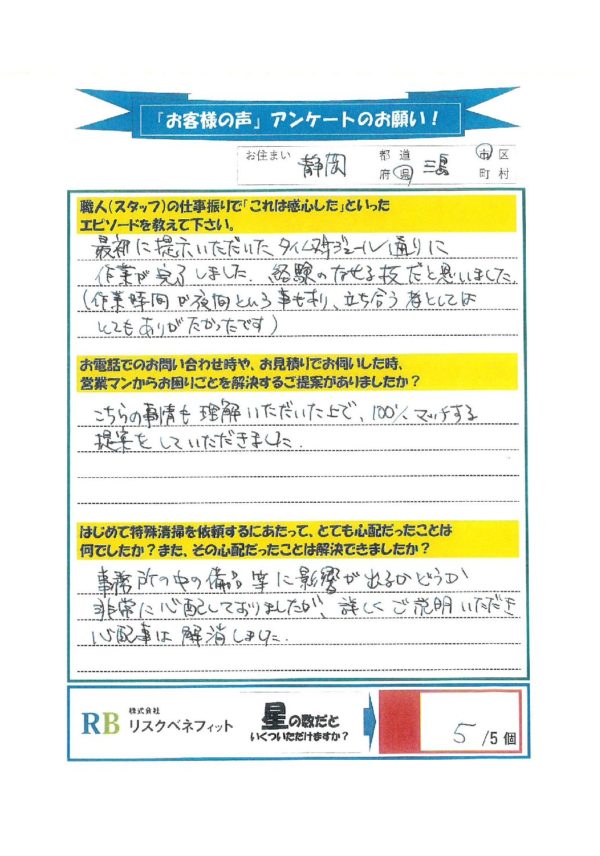 「お客様の声」アンケートのお願い！
お住まい 静岡 都道府県 三島 市区町村
職人(スタッフ)の仕事振りで「これは感心した」といった
エピソードを教えて下さい。
最初に提示いただいたタイムスケジュール通りに
作業が完了しました。経験のなせる技だと思いました。
(作業時間が夜間という事も有り、立ち合う者としては
とてもありがたかったです)
お電話でのお問い合わせ時や、お見積りでお伺いした時、
営業マンからお困りごとを解決するご提案がありましたか？
こちらの事情も理解いただいた上で、100%マッチする
提案をしていただきました。
はじめて特殊清掃を依頼するにあたって、とても心配だったことは
何でしたか？また、その心配だったことは解決できましたか？
事務所の中の備品等に影響が出るかどうか
非常に心配しておりましたが、詳しくご説明いただき
心配事は解消しました.
RB 株式会社
リスクベネフィット
星の数だと
いくついただけますか？
5 /5個